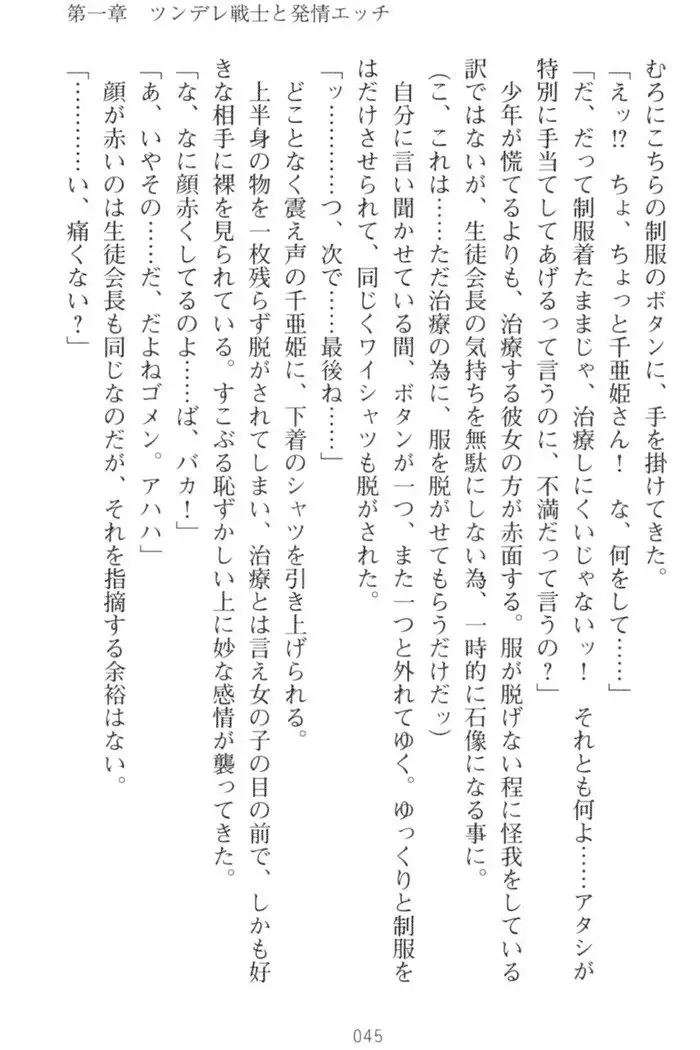 第一章　ツンデレ戦士と発情エッチ
むろにこちらの制服のボタンに、手を掛けてきた。
「えッ!?　ちょ、ちょっと千亜姫さん！　な、何をして……」
「だ、だって制服着たままじゃ、治療しにくいじゃないッ！　それとも何よ……アタシが
特別に手当てしてあげるって言うのに、不満だって言うの？」
少年が慌てるよりも、治療する彼女の方が赤面する。服が脱げない程に怪我をしている
訳ではないが、生徒会長の気持ちを無駄にしない為、一時的に石像になる事に。
(こ、これは……ただ治療の為に、服を脱がせてもらうだけだッ)
自分に言い聞かせている間、ボタンが一つ、また一つと外れてゆく。ゆっくりと制服を
はだけさせられて、同じくワイシャツも脱がされた。
「ッ…………つ、次で……最後ね……」
どことなく震え声の千亜姫に、下着のシャツを引き上げられる。
上半身の物を一枚残らず脱がされてしまい、治療とは言え女の子の目の前で、しかも好
きな相手に裸を見られている。すこぶる恥ずかしい上に妙な感情が襲ってきた。
「な、なに顔赤くしてるのよ……ば、バカ！」
「あ、いやその……だ、だよねゴメン。アハハ」
顔が赤いのは生徒会長も同じなのだが、それを指摘する余裕はない。
「…………い、痛くない？」
045